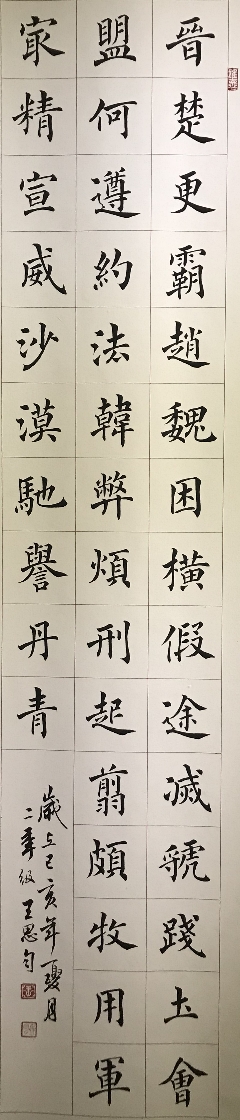 晉楚更霸趙魏困橫假途滅虢踐土會
盟何遵約法韓弊煩刑起翦頗牧用軍
㝡精宣威沙漠馳譽丹青
歲在己亥年夏月
二年級王思勻